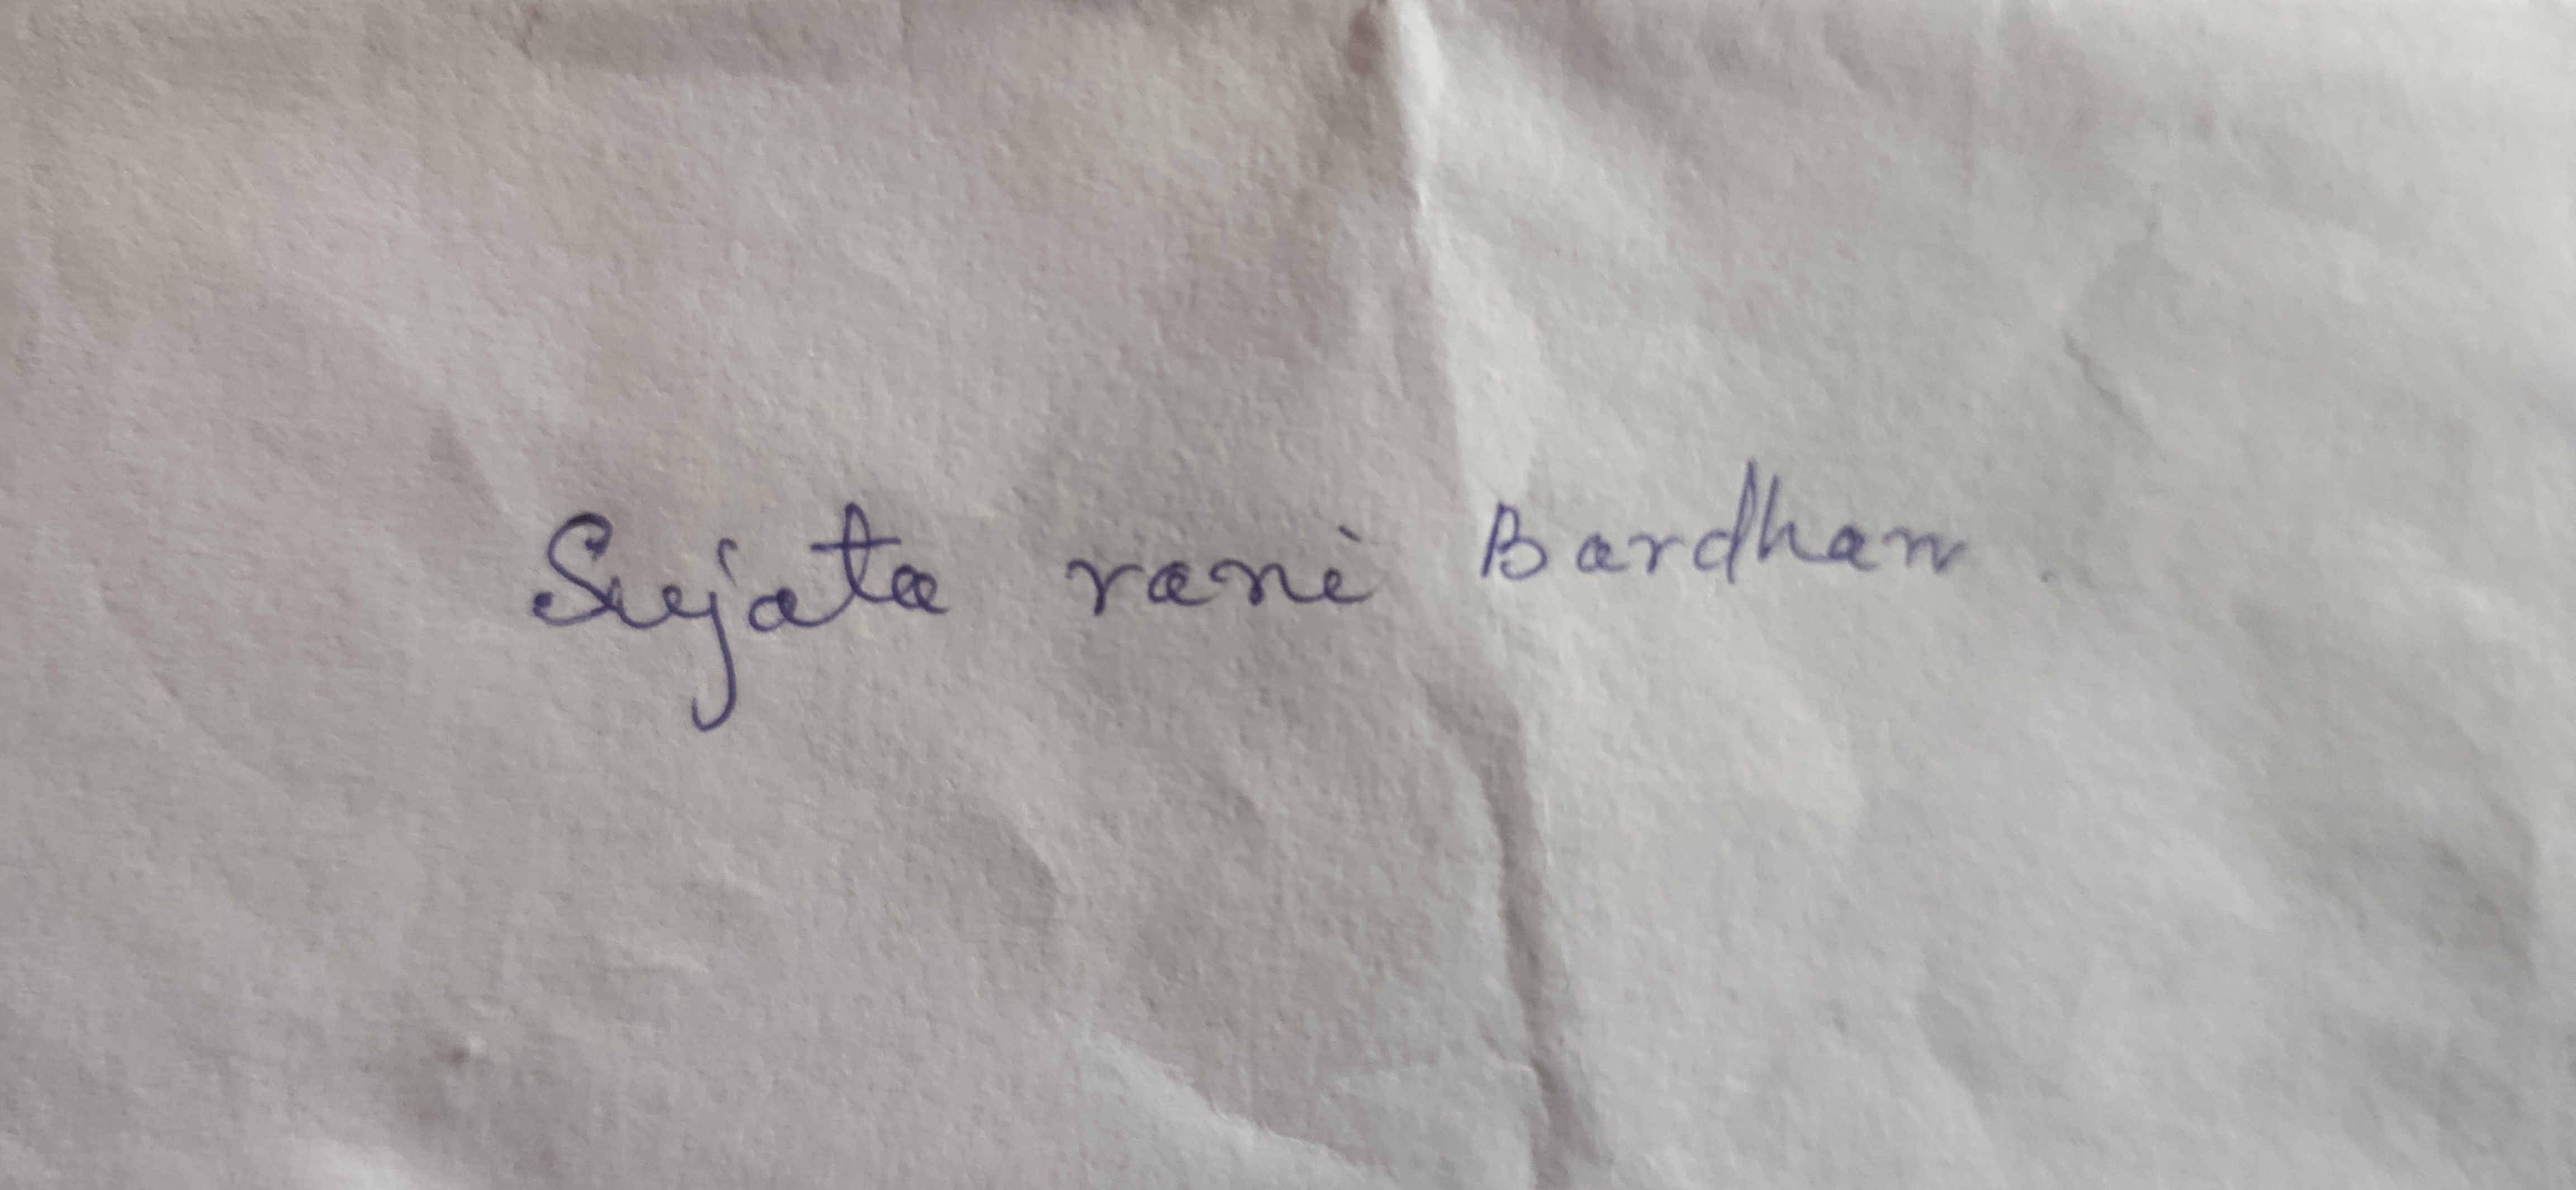 Sujata rani Bardhan.